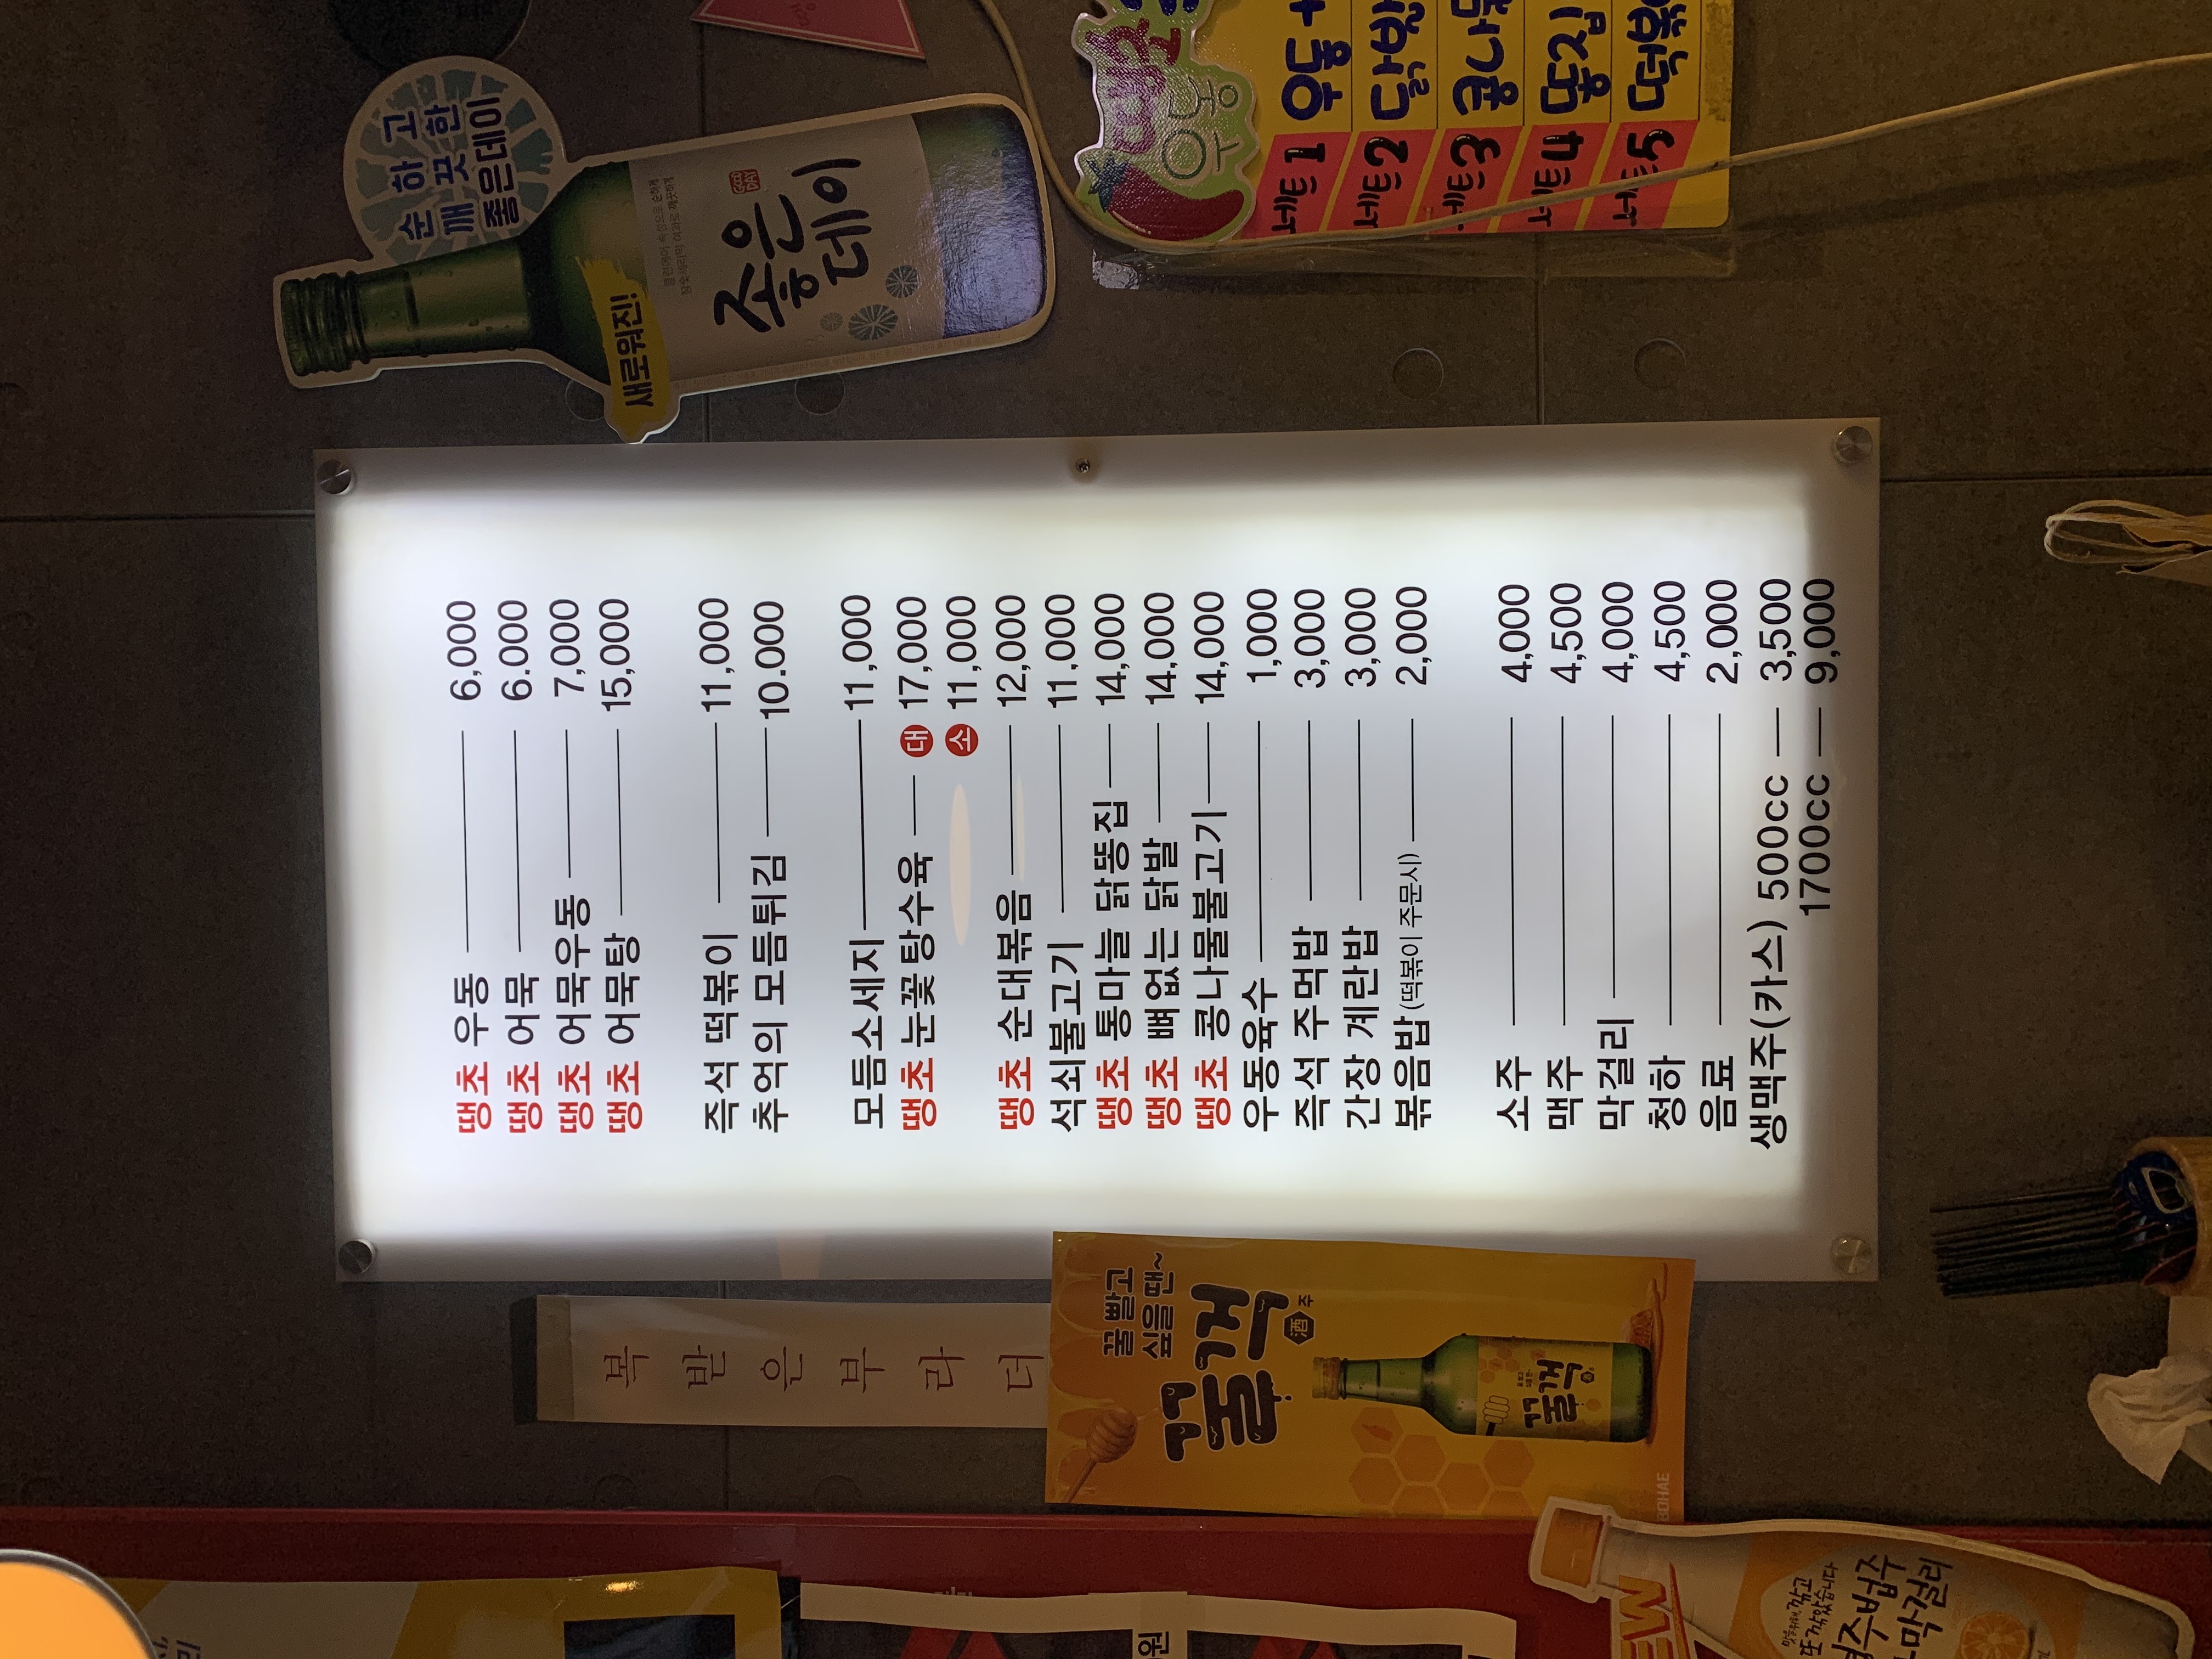 땡초 우동 6,000
땡초 어묵 6.000
땡초 어묵우동 7,000
땡초 어묵탕 15,000
즉석 떡볶이 11,000
추억의 모듬튀김 10.000
모듬소세지 11,000
땡초 눈꽃탕수육 대 17,000
소 11,000
땡초 순대볶음 12,000
석쇠불고기 11,000
땡초 통마늘 닭똥집 14,000
땡초 뼈없는 닭발 14,000
땡초 콩나물불고기 14,000
우동육수 1,000
즉석 주먹밥 3,000
간장 계란밥 3,000
볶음밥(떡볶이 주문시) 2,000
소주 4,000
맥주 4,500
막걸리 4,000
청하 4,500
음료 2,000
생맥주(카스) 500cc 3,500
1700cc 9,000
순하고
깨끗한
좋은데이
새로워진!
좋은
데이
GOOD DAY
땡초
우동
세트1 우동+
세트2
세트3
세트4
세트5
복
받
은
부
라
더
꿀 빨고
싶을 땐~
꿀꺽
酒 주
꿀꺽
또 깎았습니다
막걸리
원